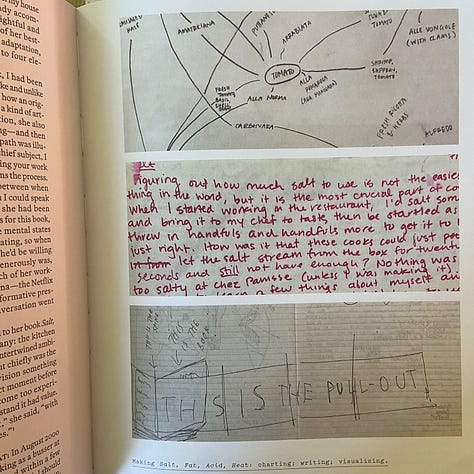 my house
ady accom-
ghtful and
of her best-
adaptation,
to four ele-
I had been
ike and unlike
how an orig-
a kind of art-
ion, she also
ng—and then
path was illu-
hief subject, I
ing your work
ms the process.
between when
I could speak
she had been
s for this book,
e mental states
ating, so when
he'd be willing
enerously was.
ch of her work-
na—the Netflix
formative pres-
versation went
to her book Salt,
any: the kitchen
ntertwined ambi-
t chiefly was the
vision something
ct moment before
come too experi-
stand it had value.
" she said, "with
es."
AT: In August 2000
king as a busser at
d within a few
I should
AMATRICIANA
PUTTANESCA
ARRABIATA
TUNA &
TOMATO
ALLE VONGOLE
(WITH CLAMS)
TOMATO
SHRIMP,
SAFFRON,
TOMATO
FRESH
TOMATO,
BASIL,
ALLA NORMA
ALLA
POMAROLA
CARBONARA
FRESH RICOTTA
& HERBS
ALFREDO
Figuring out how much salt to use is not the easies
thing in the world, but it is the most crucial part of co
When I started working in the restaurant, I'd salt som
and bring it to my chef to taste, then be startled as
threw in handfuls and handfuls more to get it to
just right. How was it that these cooks could just
let the salt stream from the box for twent
seconds and still not have enough? Nothing was
too salty at chez Panisse (unless I was making it).
to learn a few things about myself
THIS IS THE
THIS
IS THE
THIS IS THE PULL-OUT
Making Salt, Fat, Acid, Heat: charting; writing; visualising.